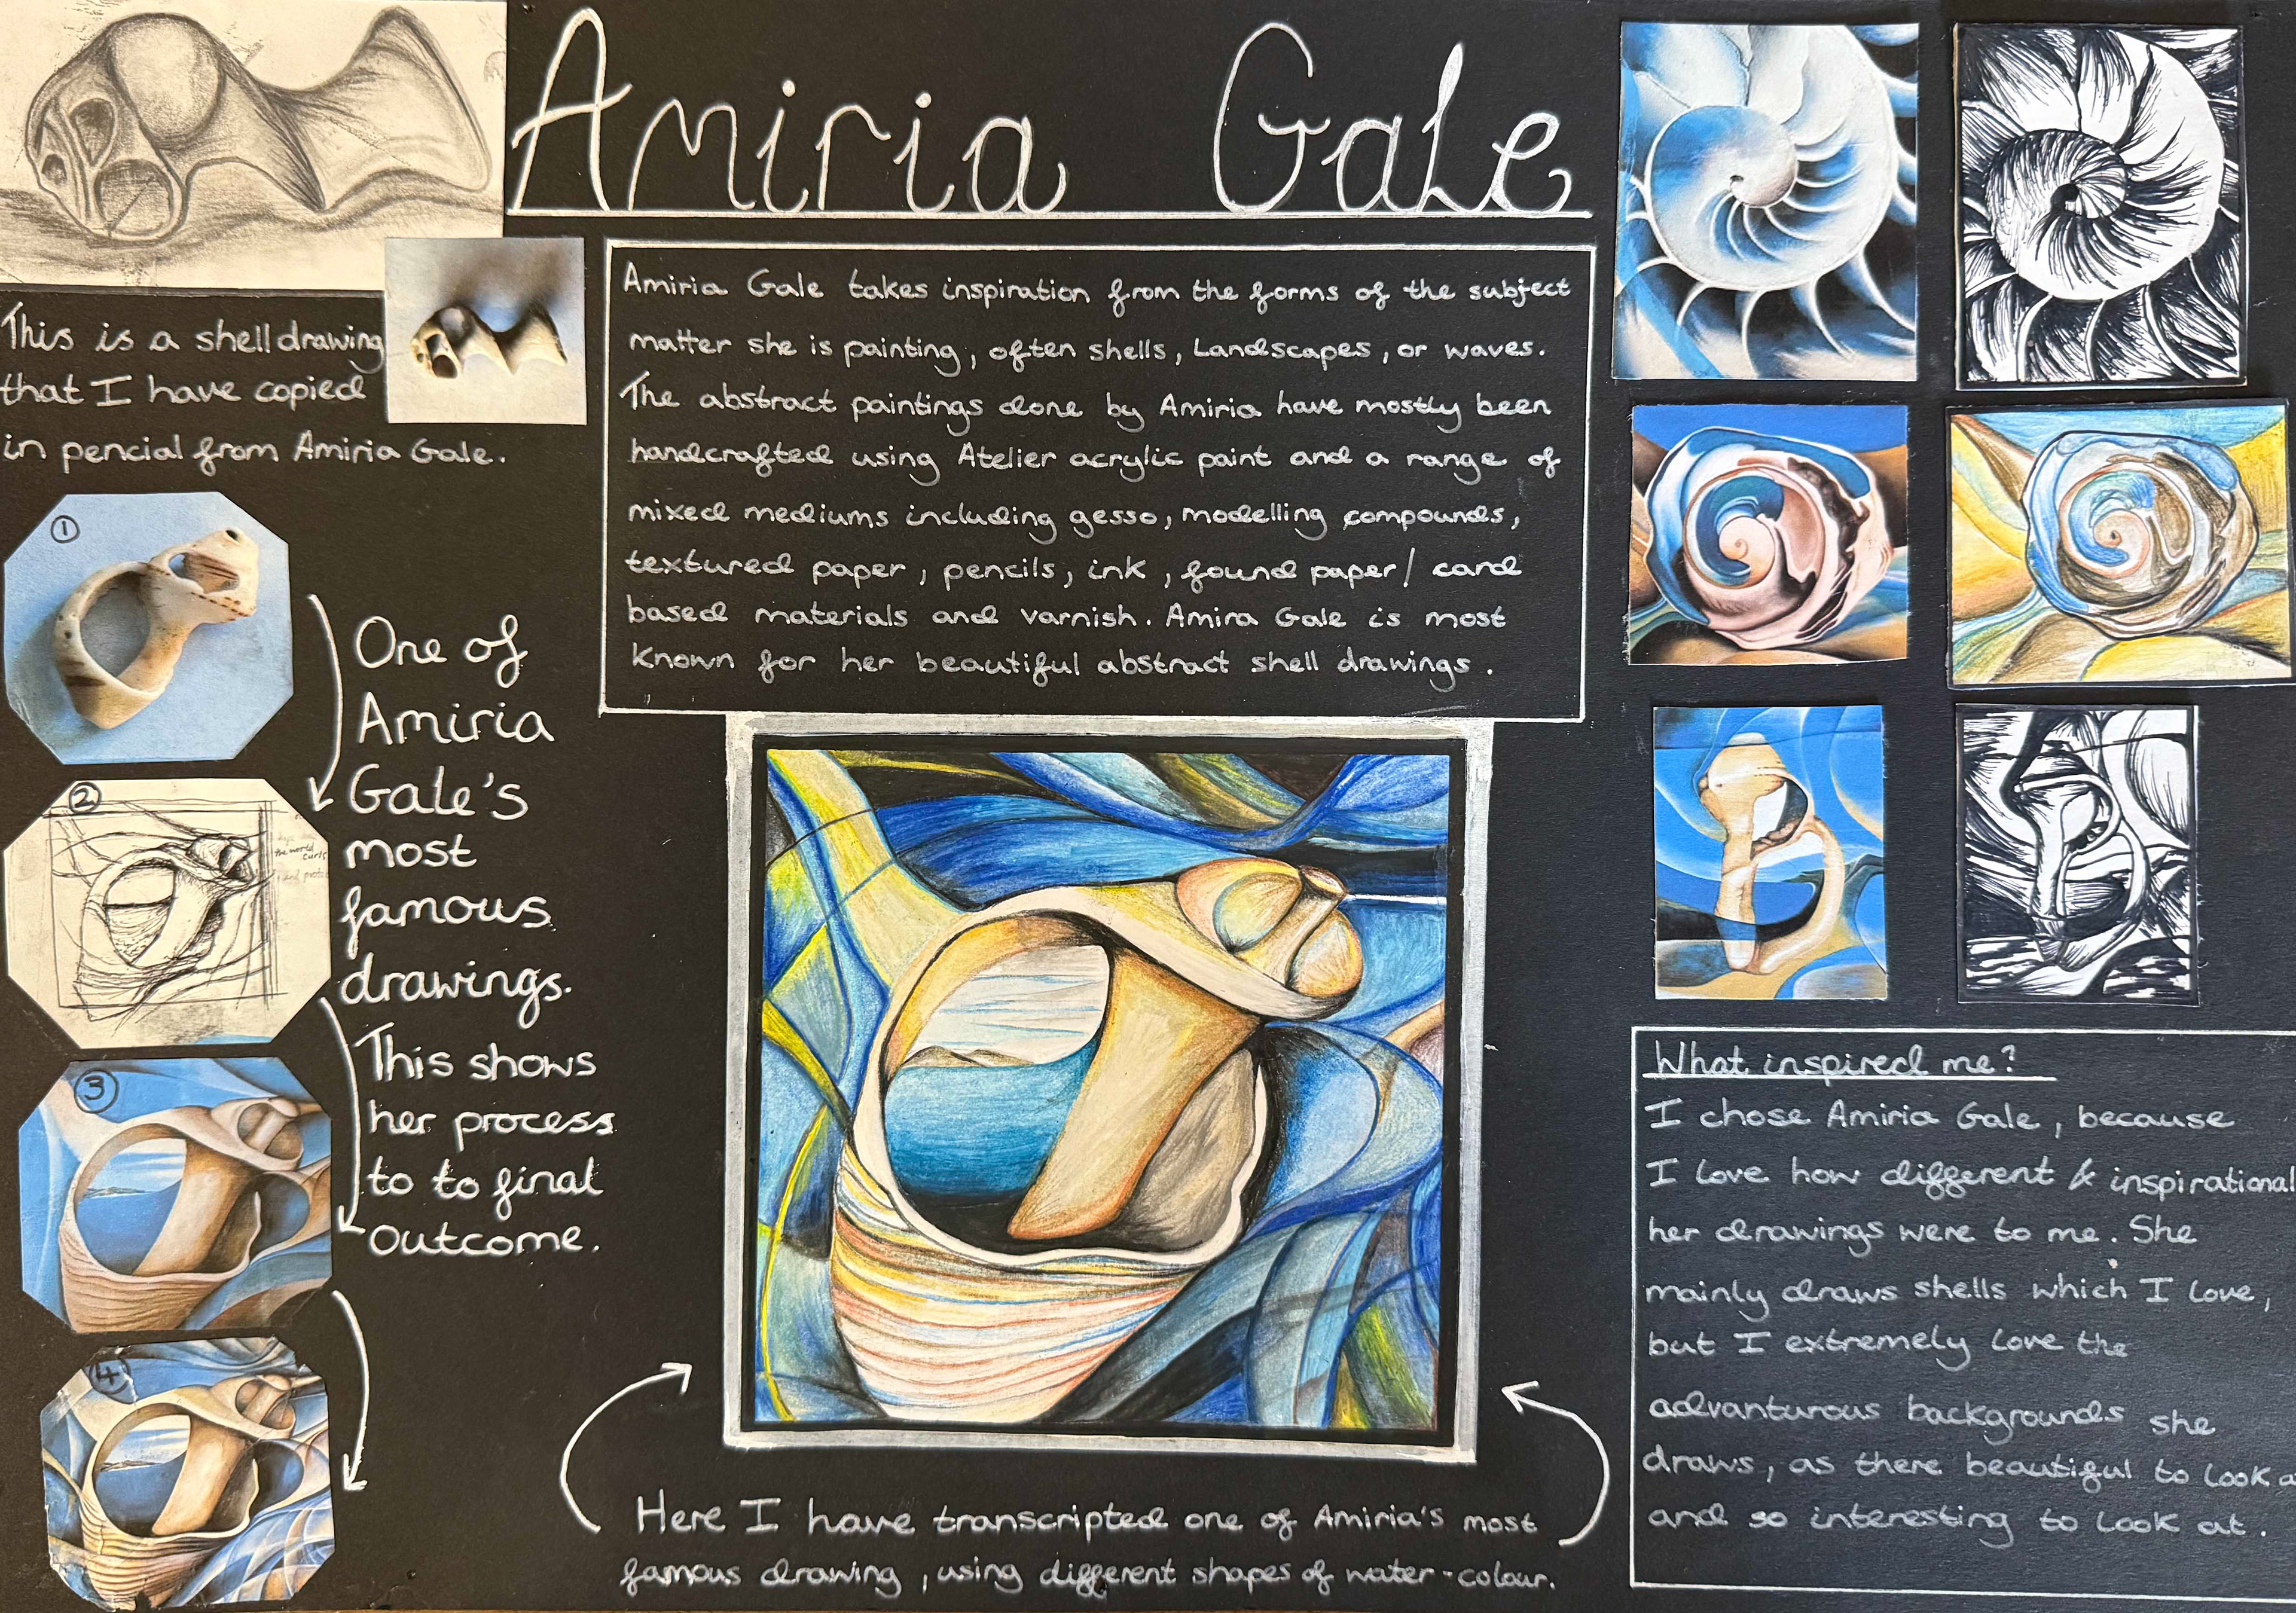 Amiria Gale
This is a shell drawing
that I have copied
in pencial from Amiria Gale.
Amiria Gale takes inspiration from the forms of the subject
matter she is painting, often shells, Landscapes, or waves.
The abstract paintings done by Amiria have mostly been
handcrafted using Atelier acrylic paint and a range of
mixed mediums including gesso, modelling compounds,
textured paper, pencils, ink, found paper/ card
based materials and varnish. Amira Gale is most
known for her beautiful abstract shell drawings.
1
2
the world
curls
3
4
One of
Amiria
Gale's
most
famous
drawings.
This shows
her process
to to final
outcome.
Here I have transcripted one of Amiria's most
famous drawing, using different shapes of water-colour.
What inspired me?
I chose Amiria Gale, because
I love how different & inspirational
her drawings were to me. She
mainly draws shells which I love,
but I extremely love the
advanturous backgrounds she
draws, as there beautiful to look a
and so interesting to look at.